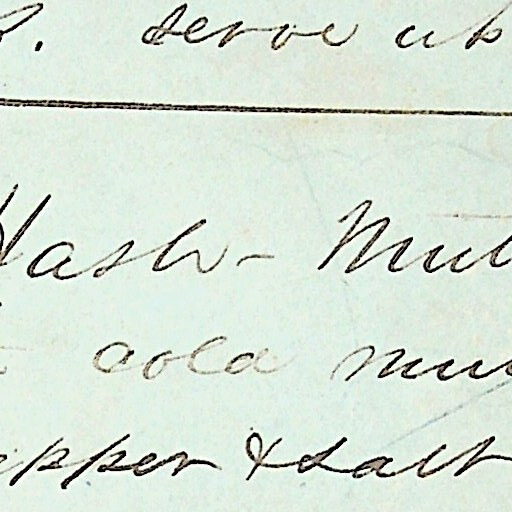 serve up
Hash - Mut
cold mut
epper & salt